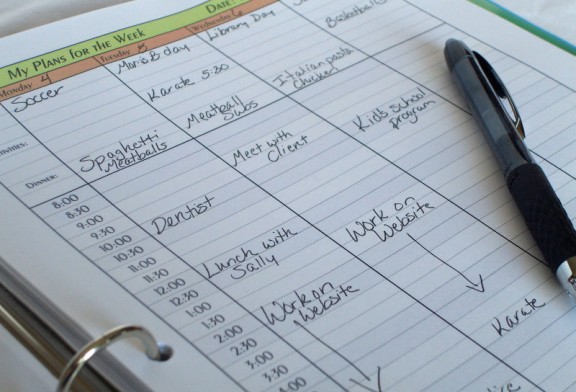 My Plans for the Week
Date:
Monday 4
Tuesday 5
Wednesday 6
Soccer
Library Day
Basketball
Karate 5:30
Dinner:
Spaghetti
Meatballs
Meatball
Subs
Italian pasta
Chicken
8:00
8:30
9:00
9:30
10:00
10:30
11:00
11:30
12:00
12:30
1:00
1:30
2:00
2:30
3:00
3:30
4:00
Dentist
Lunch with
Sally
Work on
Website
Meet with
Client
Work on
Website
Kids school
program
Karate